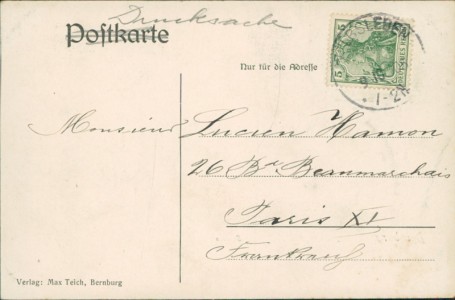 Drucksache
Postkarte
Nur für die Adresse
5
Monsieur Lucien Hamon
26 Bd Beaumarchais
Paris XI
Frankreich
Verlag: Max Teich, Bernburg